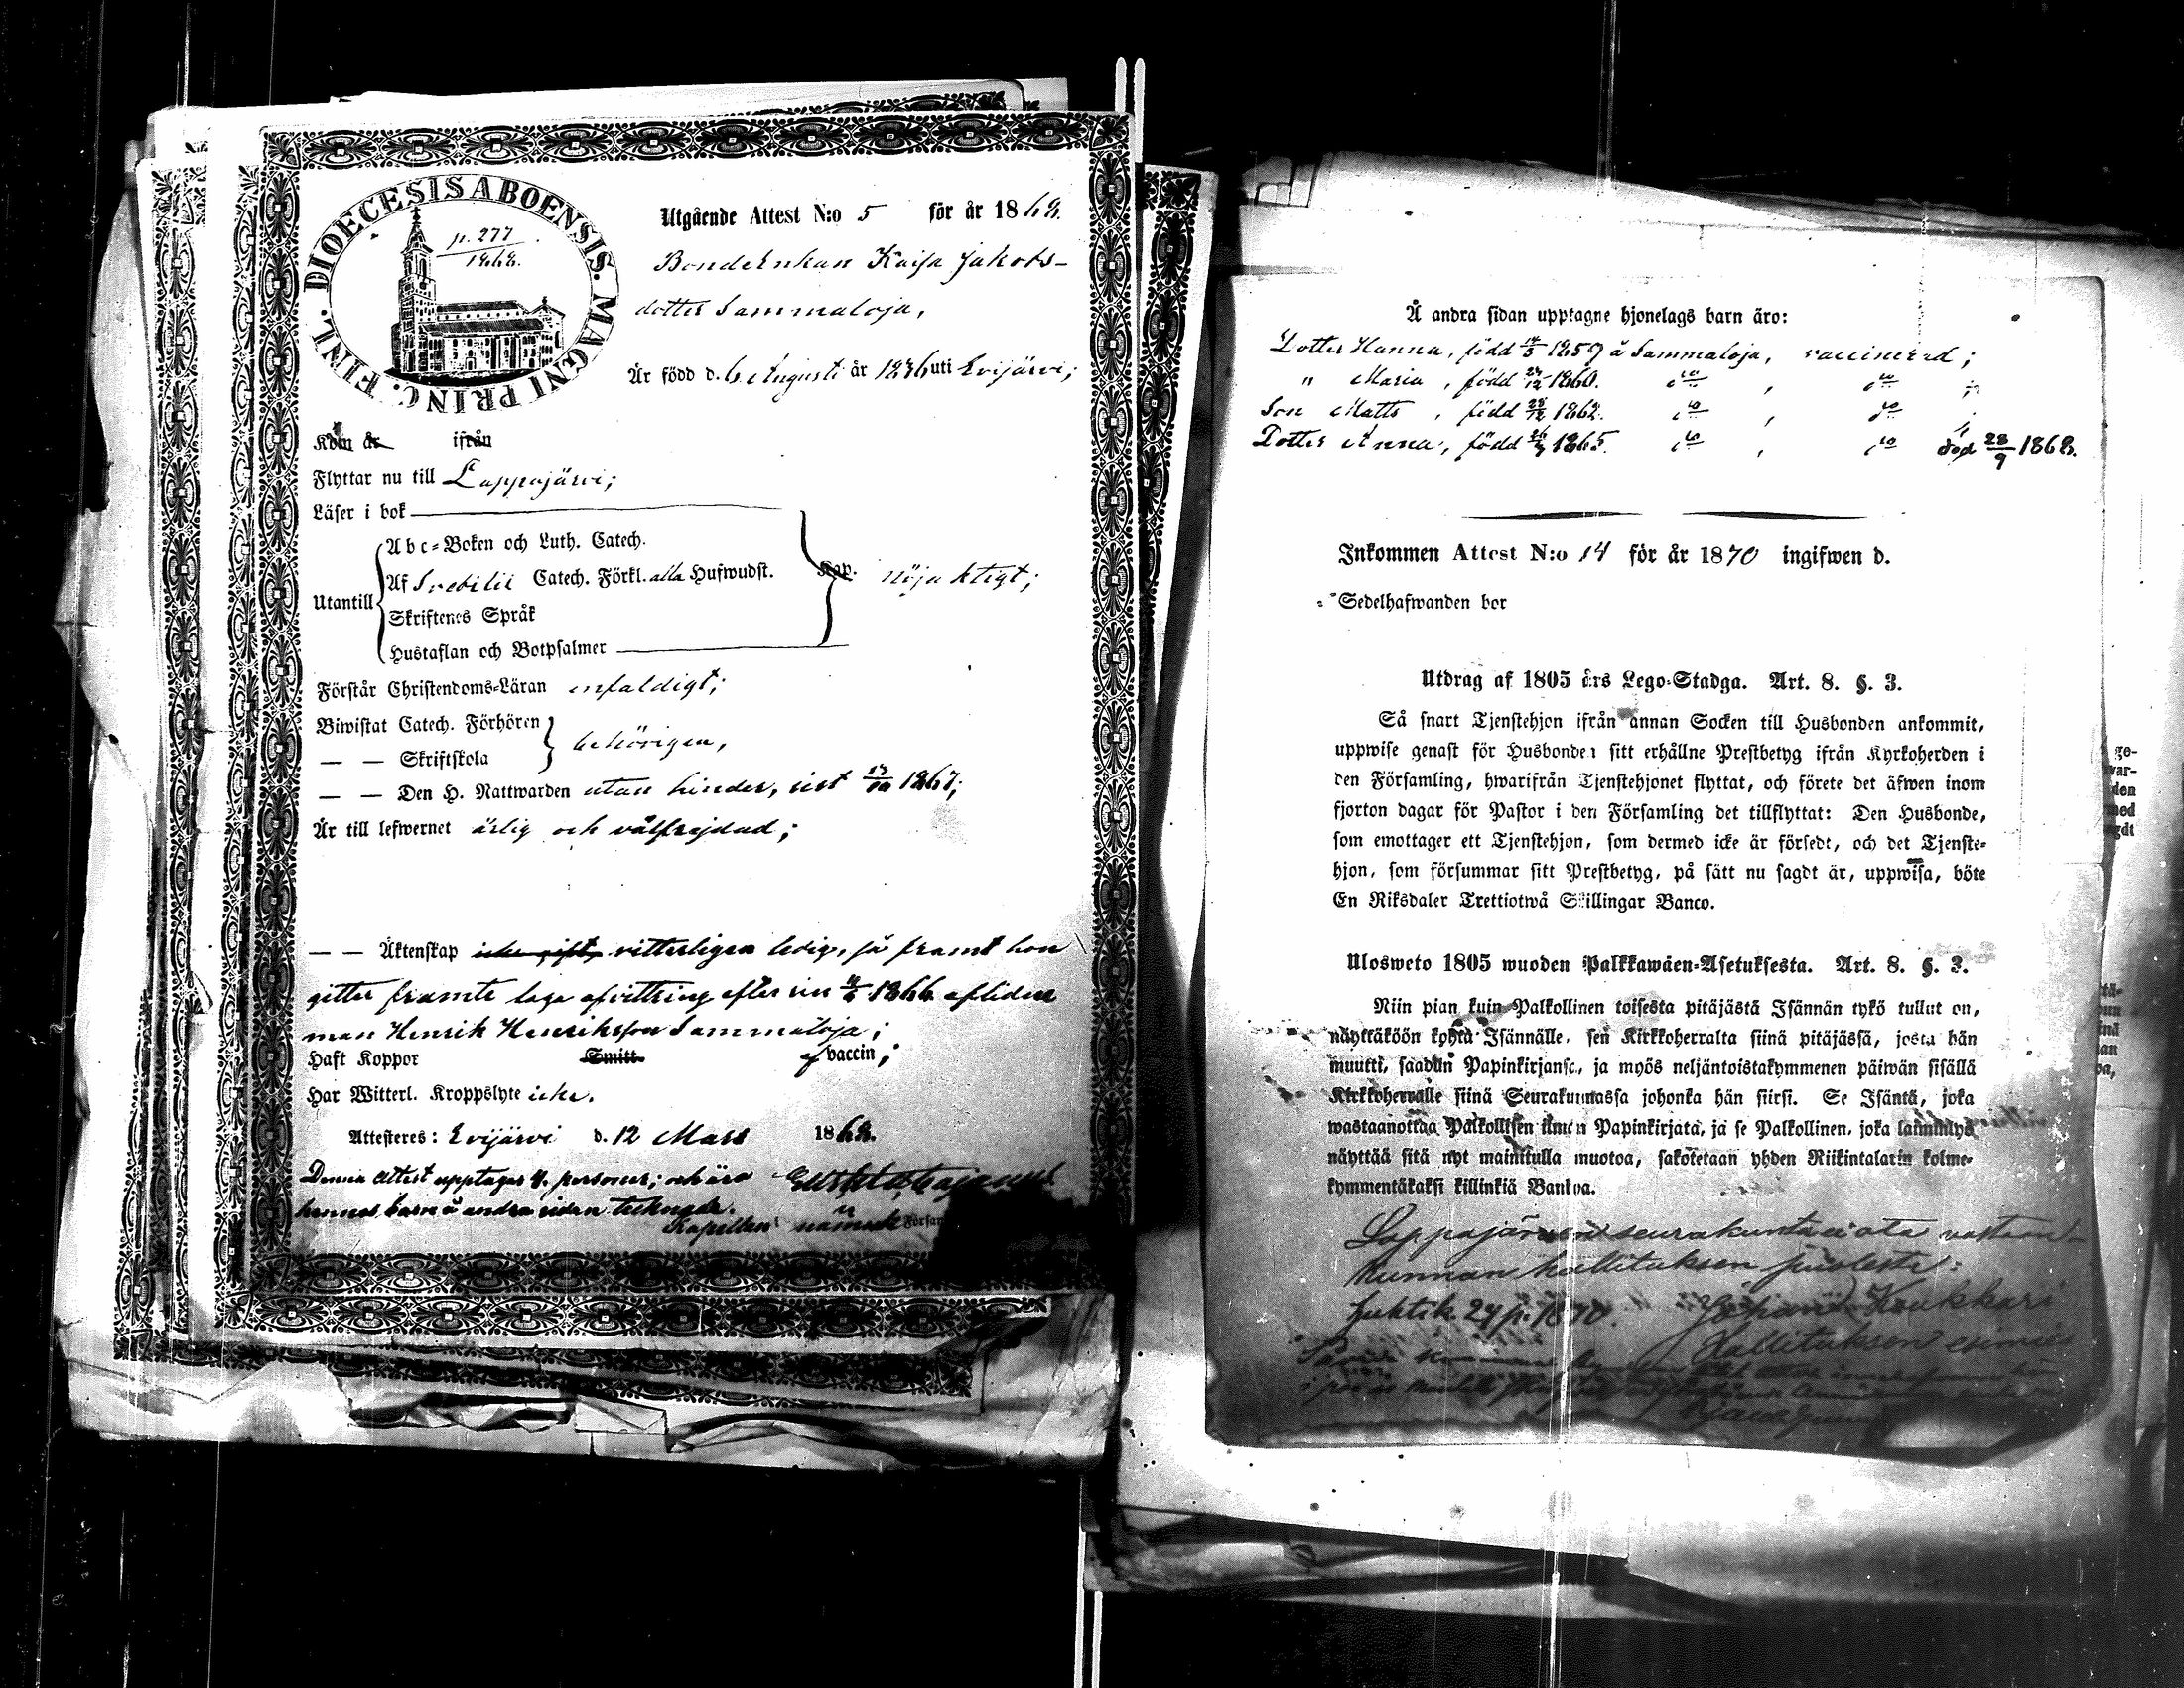 DIOECESIS ABOENSIS. MAGNI PRINC. FINL.
p. 277
1868.
Utgående Attest N:o 5 för år 1868.
Bondeenkan Kaisa Jakobs-
dotter Sammaloja,
Är född d. 6 Augusti år 1836 uti Evijärvi;
Kom år ifrån
Flyttar nu till Lappajärvi;
Läser i bok
Abc-Boken och Luth. Catech.
Utantill Af Svebilii Catech. Förkl. alla Hufwudst. Kap. nöjaktigt;
Skriftenes Språk
Hustaflan och Botpsalmer
Förstår Christendoms-Läran enfaldigt;
Biwistat Catech. Förhören
— — Skriftskola behörigen,
— — Den H. Nattwarden utan hinder, sist 1867;
Är till lefwernet ärlig och välfrejdad;
— — Äktenskap icke gift, vitterligen ledig, så framt hon
gitter framte laga afvittring efter sin 1866 aflidne
man Henrik Henriksson Sammaloja;
Haft Koppor Smitt. af vaccin;
Har Witterl. Kroppslyte icke.
Attesteres: Evijärvi d. 12 Mars 1868.
Denna attest upptager 4. personer; och äro
hennes barn å andra sidan tecknade.
Kapellan
Å andra sidan upptagne hjonelags barn äro:
Dotter Hanna, född 1859 å Sammaloja, vaccinerad;
" Maria, född 1860. do, do;
Son Matts, född 1862. do, do;
Dotter Anna, född 1865. do, do död 28/9 1868.
Inkommen Attest N:o 14 för år 1870 ingifwen d.
Sedelhafwanden bor
Utdrag af 1805 års Lego-Stadga. Art. 8. §. 3.
Så snart Tjenstehjon ifrån annan Socken till Husbonden ankommit,
uppwise genast för Husbonden sitt erhållne Prestbetyg ifrån Kyrkoherden i
den Församling, hwarifrån Tjenstehjonet flyttat, och förete det äfwen inom
fjorton dagar för Pastor i den Församling det tillflyttat: Den Husbonde,
som emottager ett Tjenstehjon, som dermed icke är försedt, och det Tjenste-
hjon, som försummar sitt Prestbetyg, på sätt nu sagdt är, uppwisa, böte
En Riksdaler Trettiotwå Skillingar Banco.
Ulosweto 1805 wuoden Palkkawäen-Asetuksesta. Art. 8. §. 3.
Niin pian kuin Palkollinen toisesta pitäjästä Isännän tykö tullut on,
näyttäköön kohta Isännälle, sen Kirkkoherralta siinä pitäjässä, josta hän
muutti, saadun Papinkirjansa, ja myös neljäntoistakymmenen päiwän sisällä
Kirkkoherralle siinä Seurakunnassa johonka hän siirsi. Se Isäntä, joka
wastaanottaa Palkollisen ilman Papinkirjata, ja se Palkollinen, joka laiminlyö
näyttää sitä nyt mainitulla muotoa, sakotetaan yhden Riikintalarin kolme-
kymmentäkaksi killinkiä Bankoa.
Lappajärven seurakunta ei ota vastaan
kunnan hallituksen puolesta:
1870. Johan Kaukkari
Hallituksen esimies